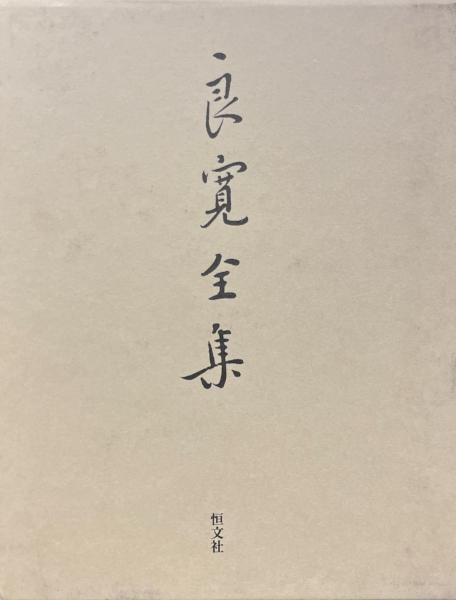 良寛全集
恒文社